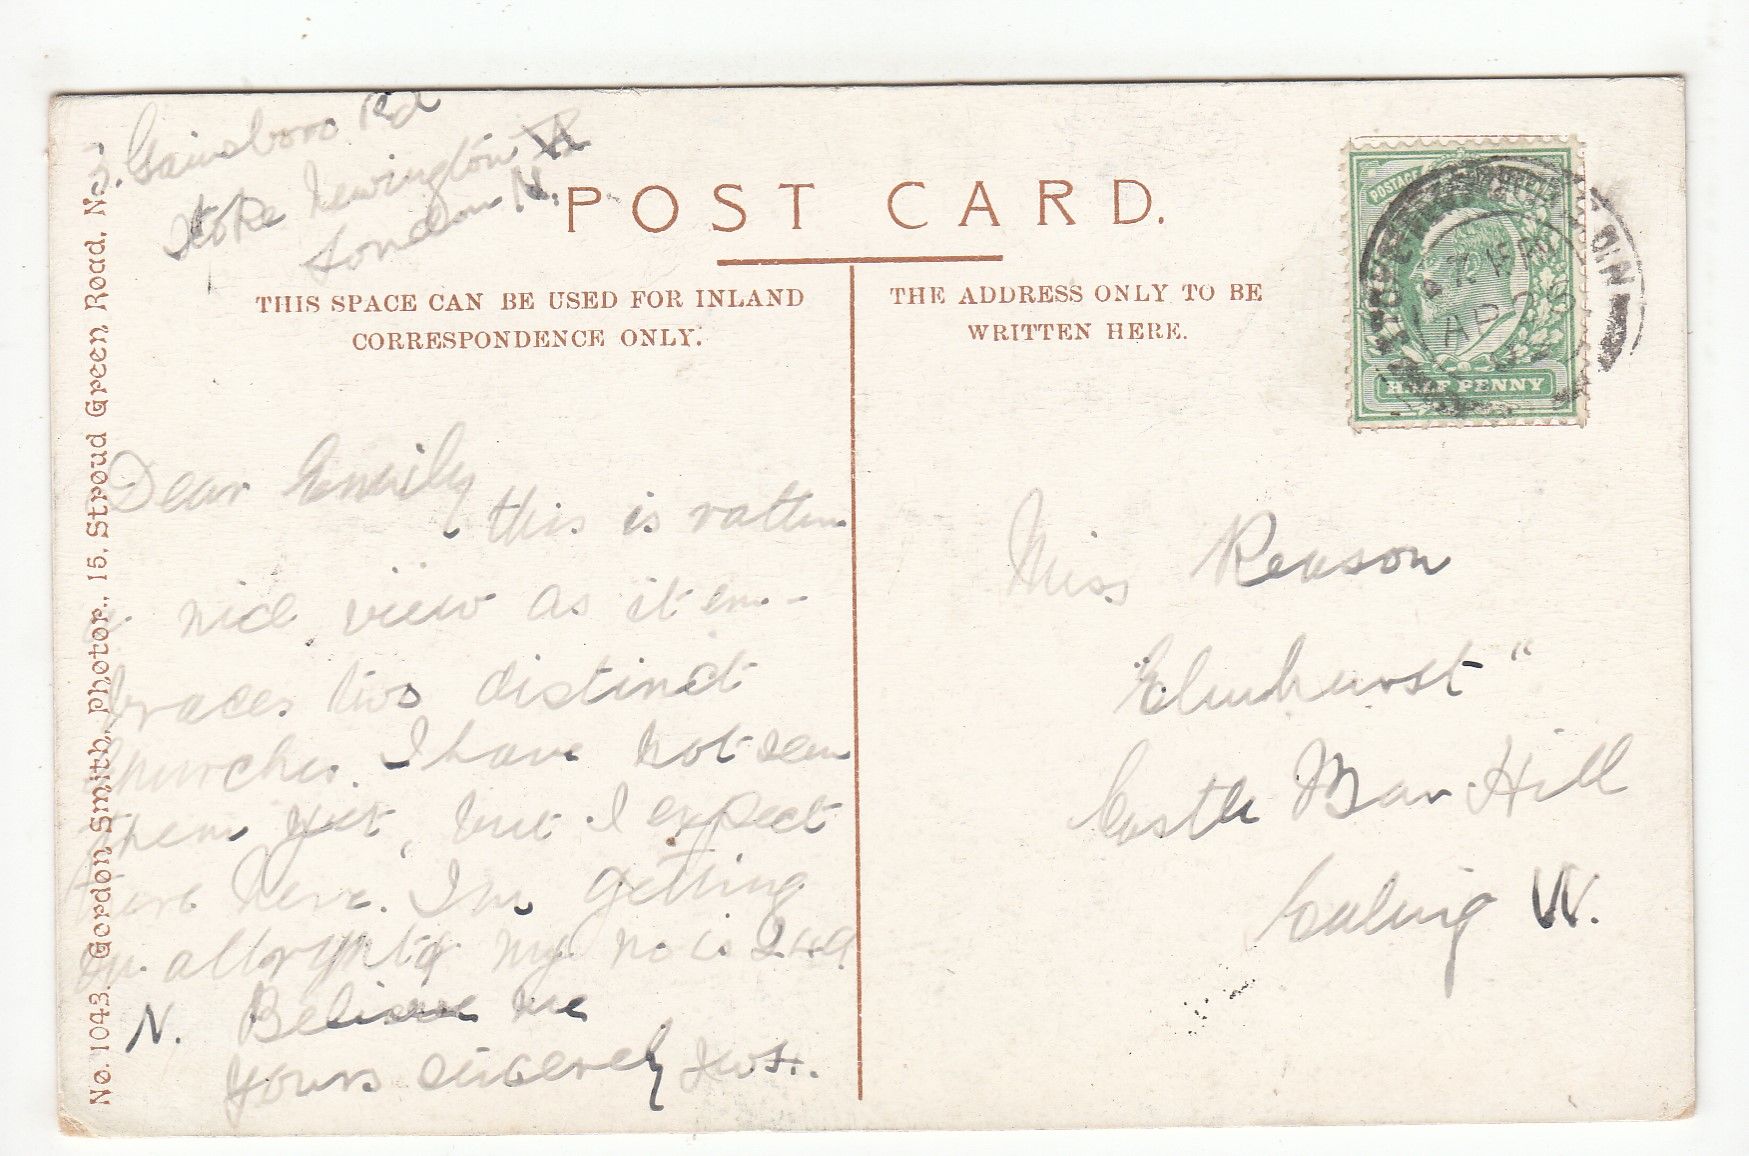 3. Gainsboro Rd
Stoke Newington
London N.
POST CARD.
THIS SPACE CAN BE USED FOR INLAND
CORRESPONDENCE ONLY.
THE ADDRESS ONLY TO BE
WRITTEN HERE.
HALF PENNY
Dear Emily
this is rather
a nice view as it em-
braces two distinct
churches. I have not seen
them yet, but I expect
I'm getting
on allright my no is
N. Believe me
Yours sincerely
Miss Reason
"Elmhurst"
Castle Bar Hill
Ealing W.
No. 1043. Gordon Smith, Photor., 15, Stroud Green Road, N.